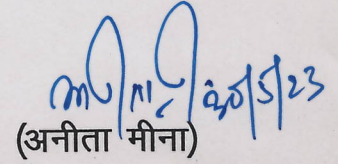 30/5/23
(अनीता मीना)